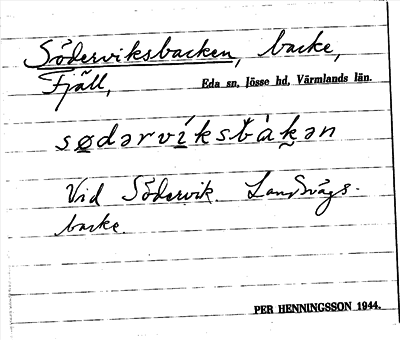 Söderviksbacken, backe,
Fjäll, Eda sn, Jösse hd, Värmlands län.
sødərvíksbàkən
Vid Södervik. Landsvägs-
backe.
PER HENNINGSSON 1944.